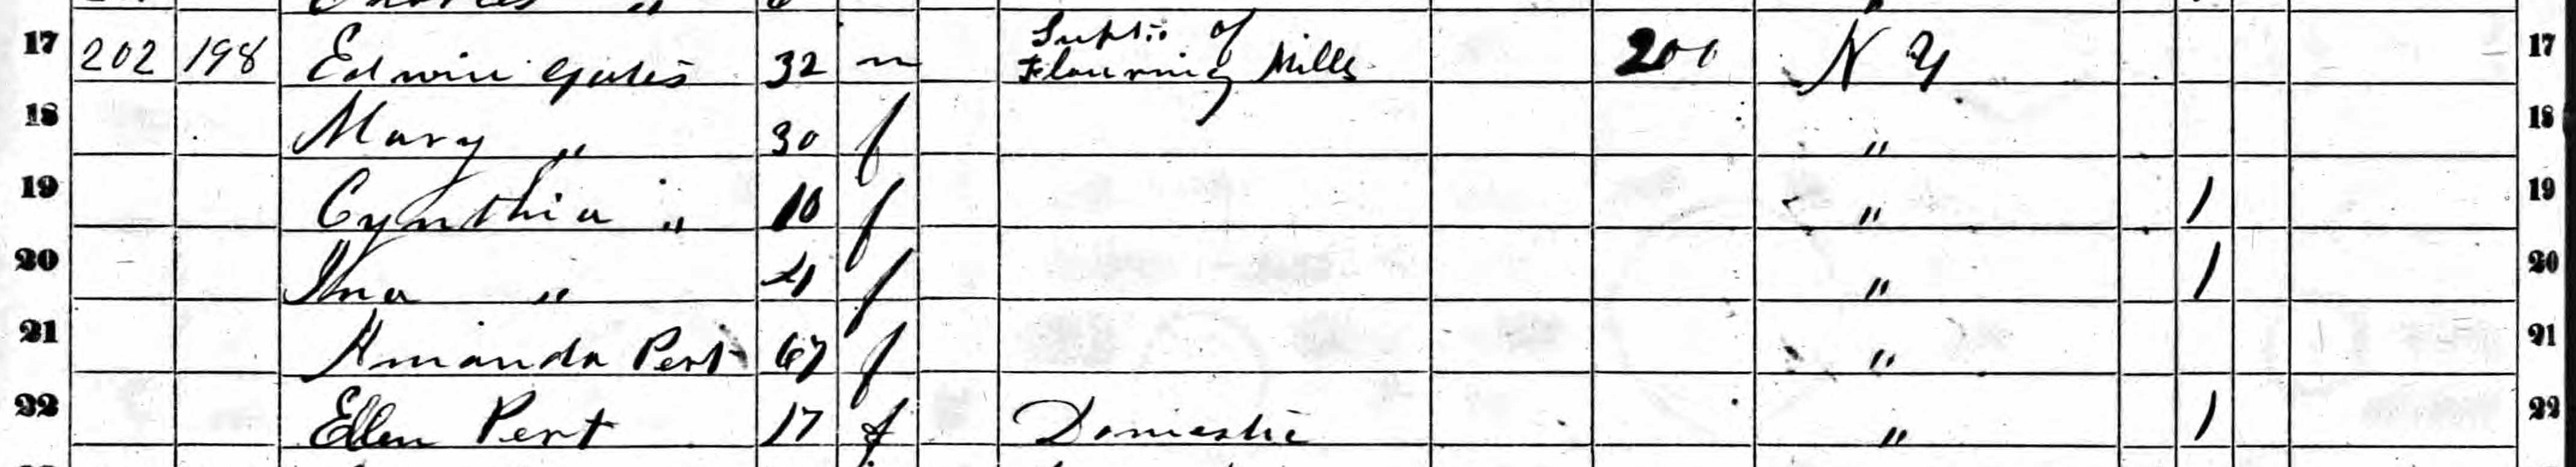 17 202 198 Edwin Gates 32 m Supt. of Flouring Mills 200 N Y 17
18 Mary " 30 f " 18
19 Cynthia " 10 f " 1 19
20 Ina " 4 f " 1 20
21 Amanda Pert 67 f " 21
22 Ellen Pert 17 f Domestic " 1 22